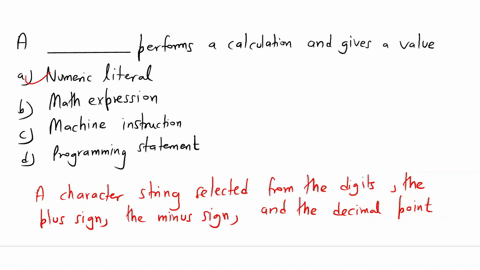 A ________ performs a calculation and gives a value
a) Numeric literal
b) Math expression
c) Machine instruction
d) Programming statement
A character string selected from the digits, the
plus sign, the minus sign, and the decimal point